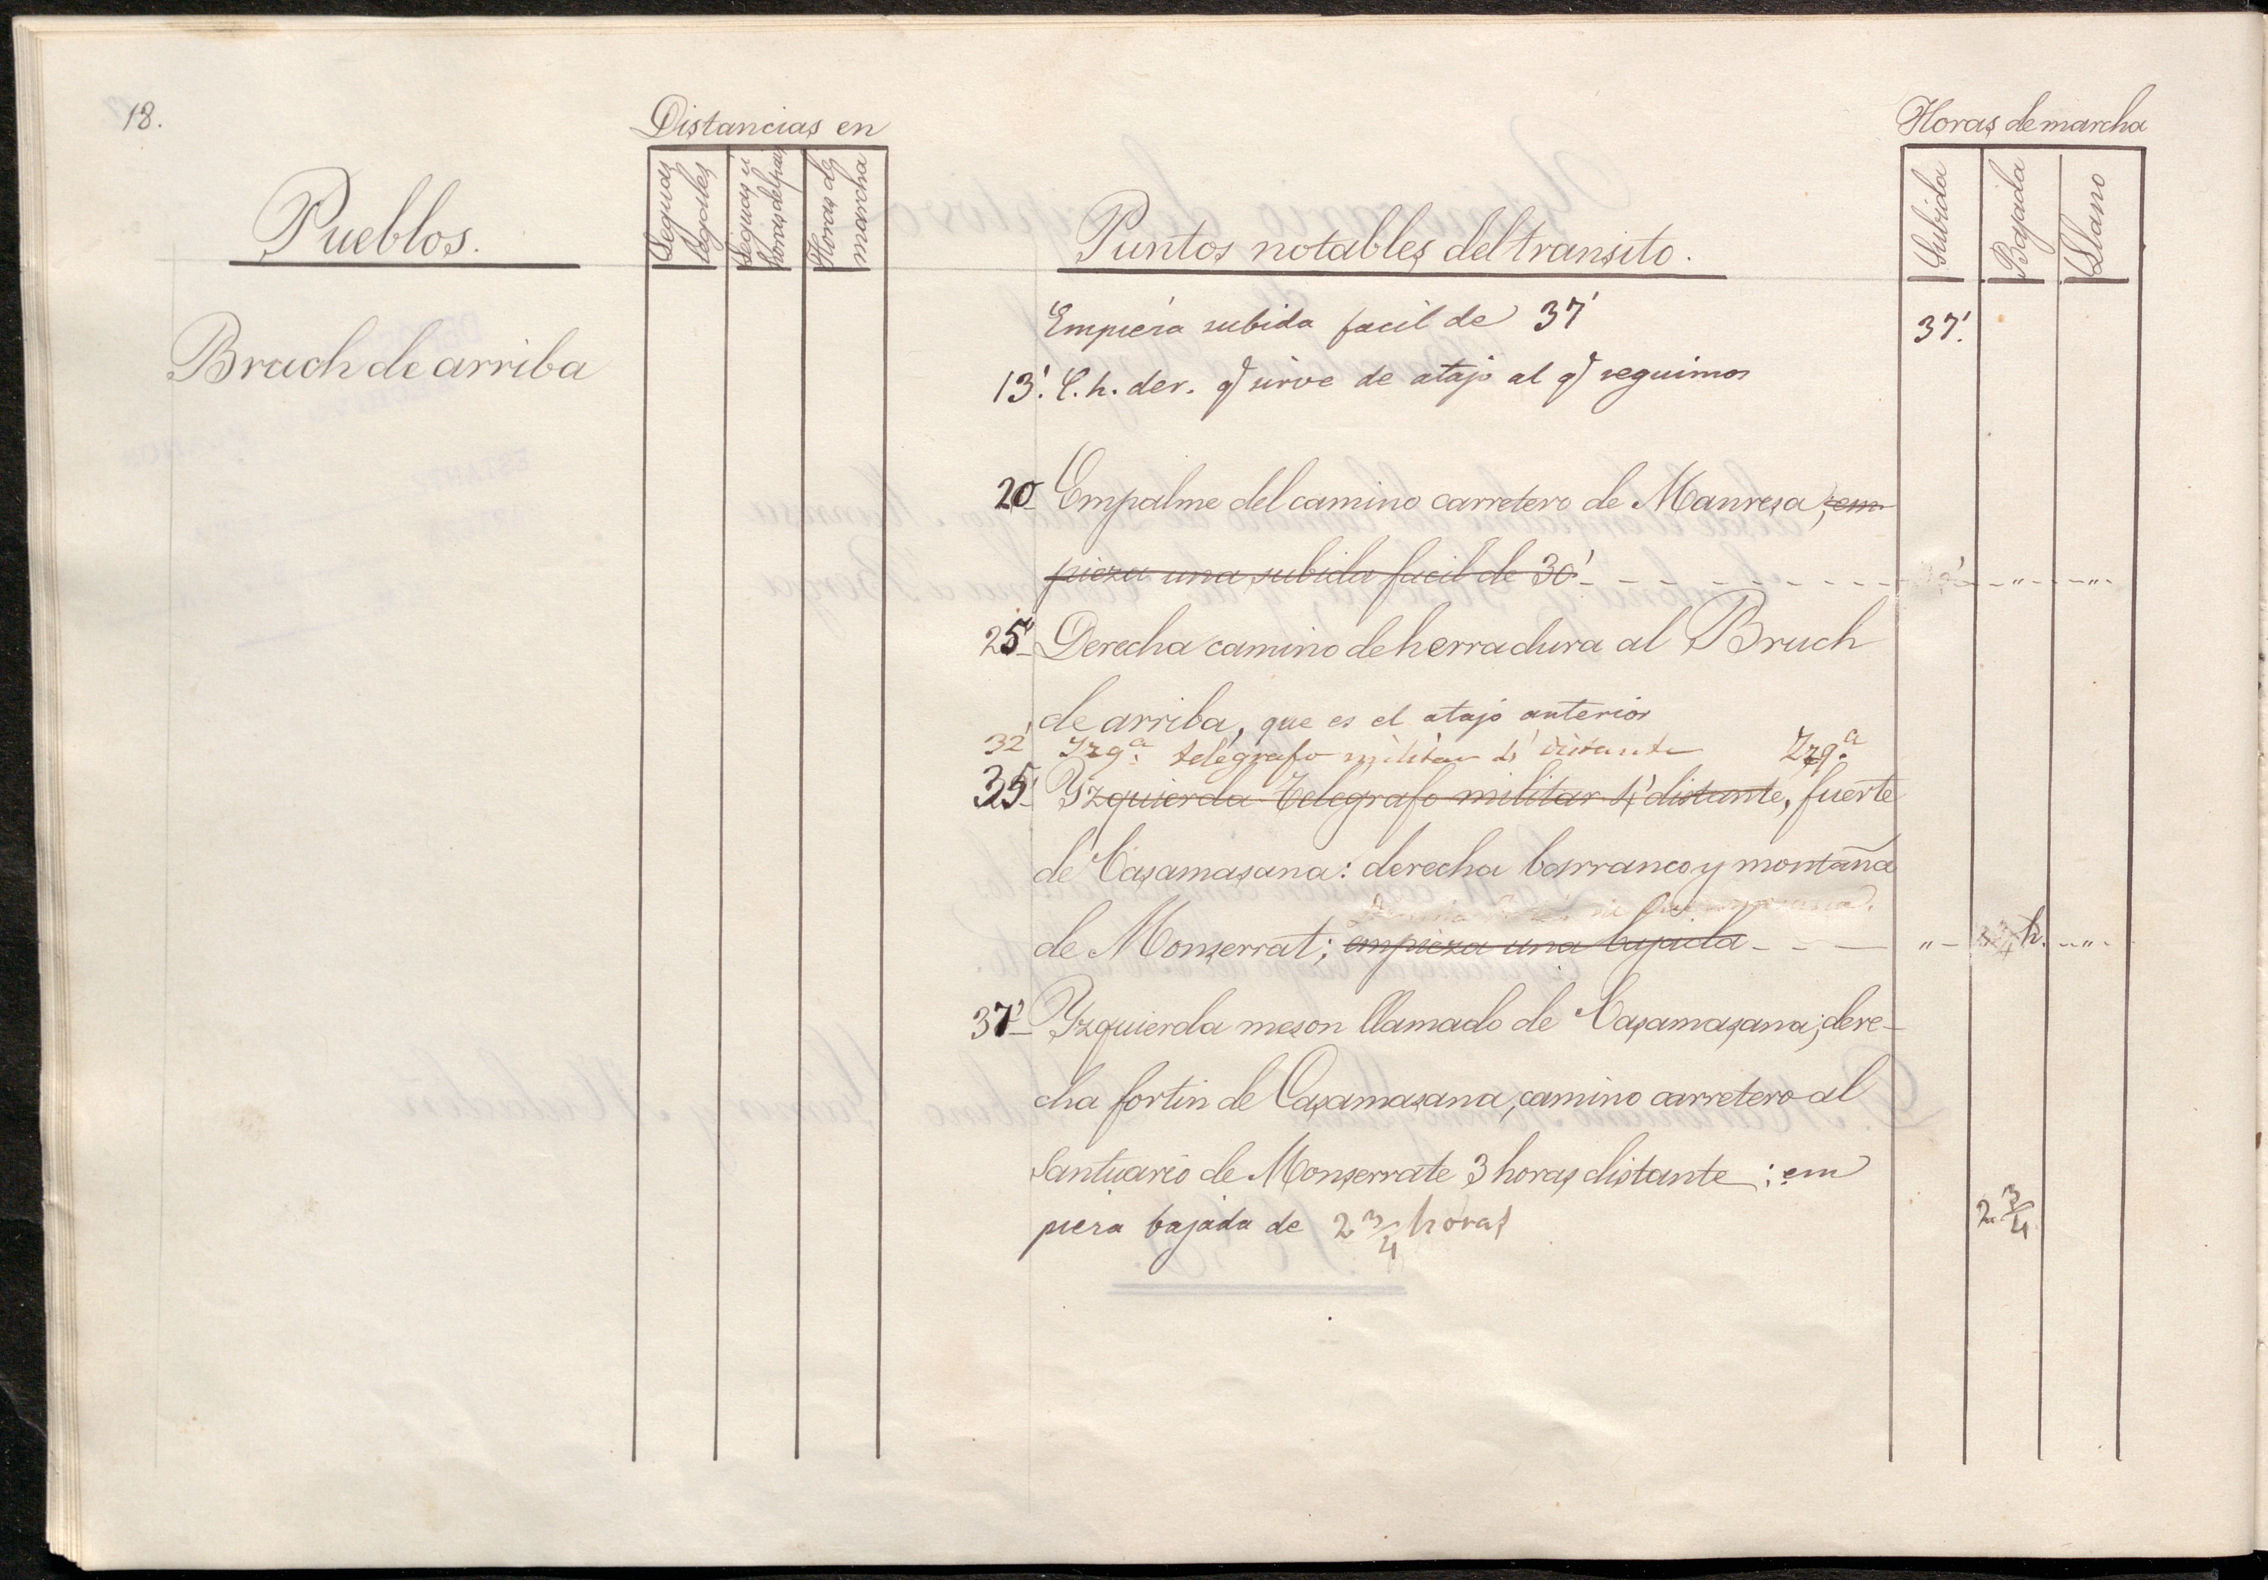 18.
Distancias en
Horas de marcha
Pueblos.
Leguas legales
Leguas ú horas del pais
Horas de marcha
Puntos notables del transito.
Subida
Bajada
Llano
Empieza subida facil de 37'
37'.
Bruch de arriba
13'. C. h. der. q̃ sirve de atajo al q̃ seguimos
20 Empalme del camino carretero de Manresa, em-
pieza una subida facil de 30'
25' Derecha camino de herradura al Bruch
de arriba, que es el atajo anterior
32' Izq.ª telégrafo militar 4' distante Izq.ª
35' Yzquierda Telegrafo militar 4' distante, fuerte
de Casamasana: derecha barranco y montaña
de Monserrat; empieza una bajada " h. "
37' Yzquierda meson llamado de Casamasana; dere-
cha fortin de Casamasana, camino carretero al
Santuario de Monserrate 3 horas distante; em
pieza bajada de 2 3/4 horas
2 3/4